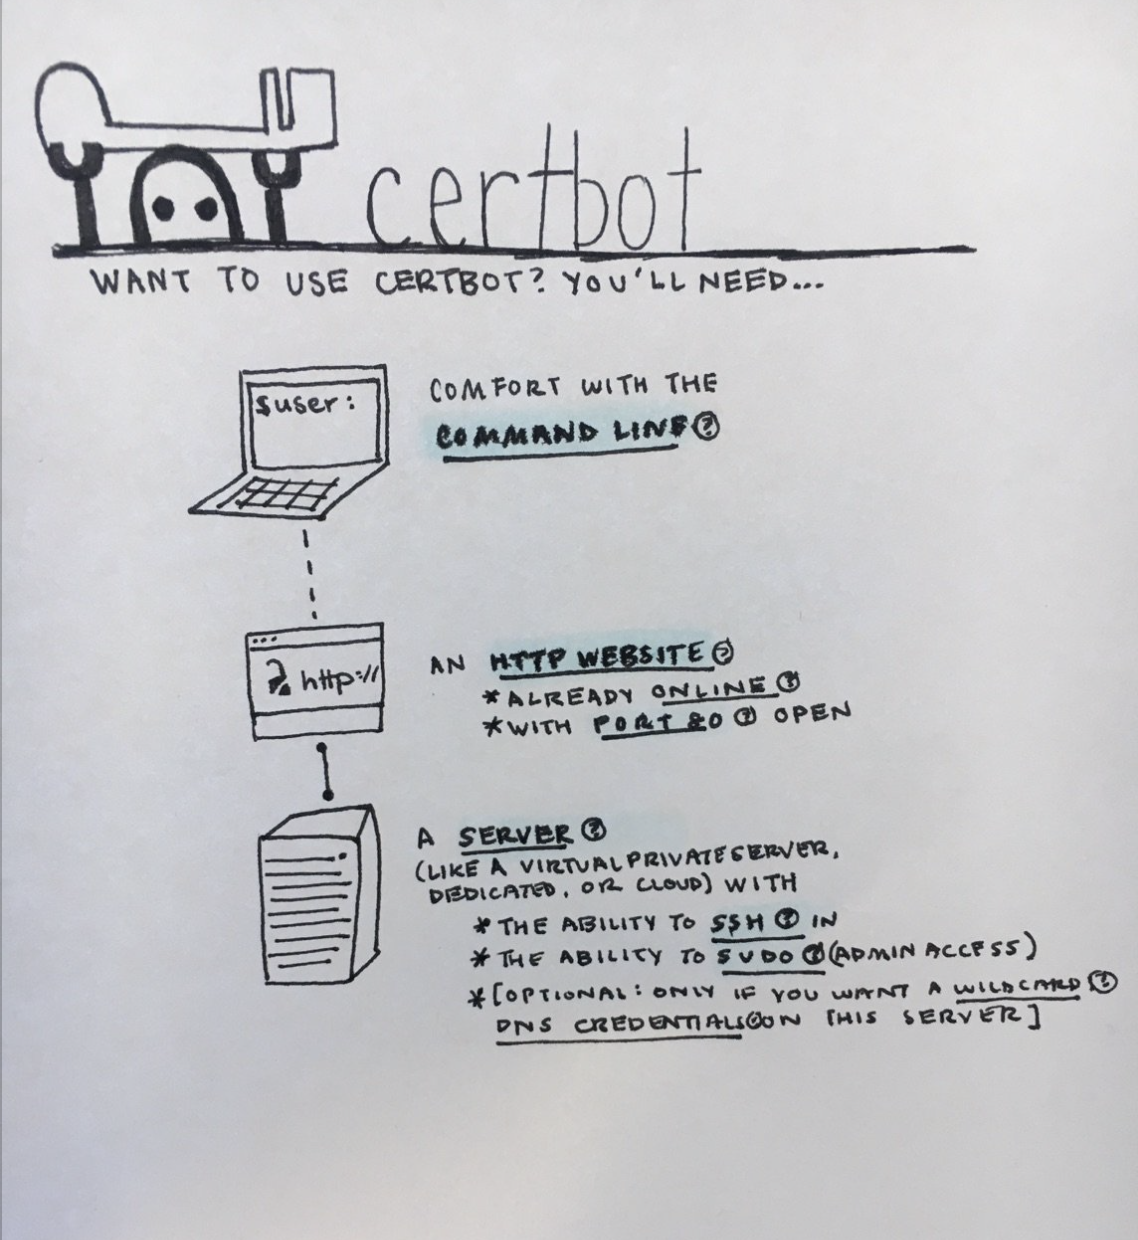 certbot
WANT TO USE CERTBOT? YOU'LL NEED...
$user:
COMFORT WITH THE
COMMAND LINE ?
http://
AN HTTP WEBSITE ?
*ALREADY ONLINE ?
*WITH PORT 80 ? OPEN
A SERVER ?
(LIKE A VIRTUAL PRIVATE SERVER,
DEDICATED, OR CLOUD) WITH
* THE ABILITY TO SSH ? IN
* THE ABILITY TO SUDO ? (ADMIN ACCESS)
* [OPTIONAL: ONLY IF YOU WANT A WILDCARD ?
DNS CREDENTIALS ? ON THIS SERVER]